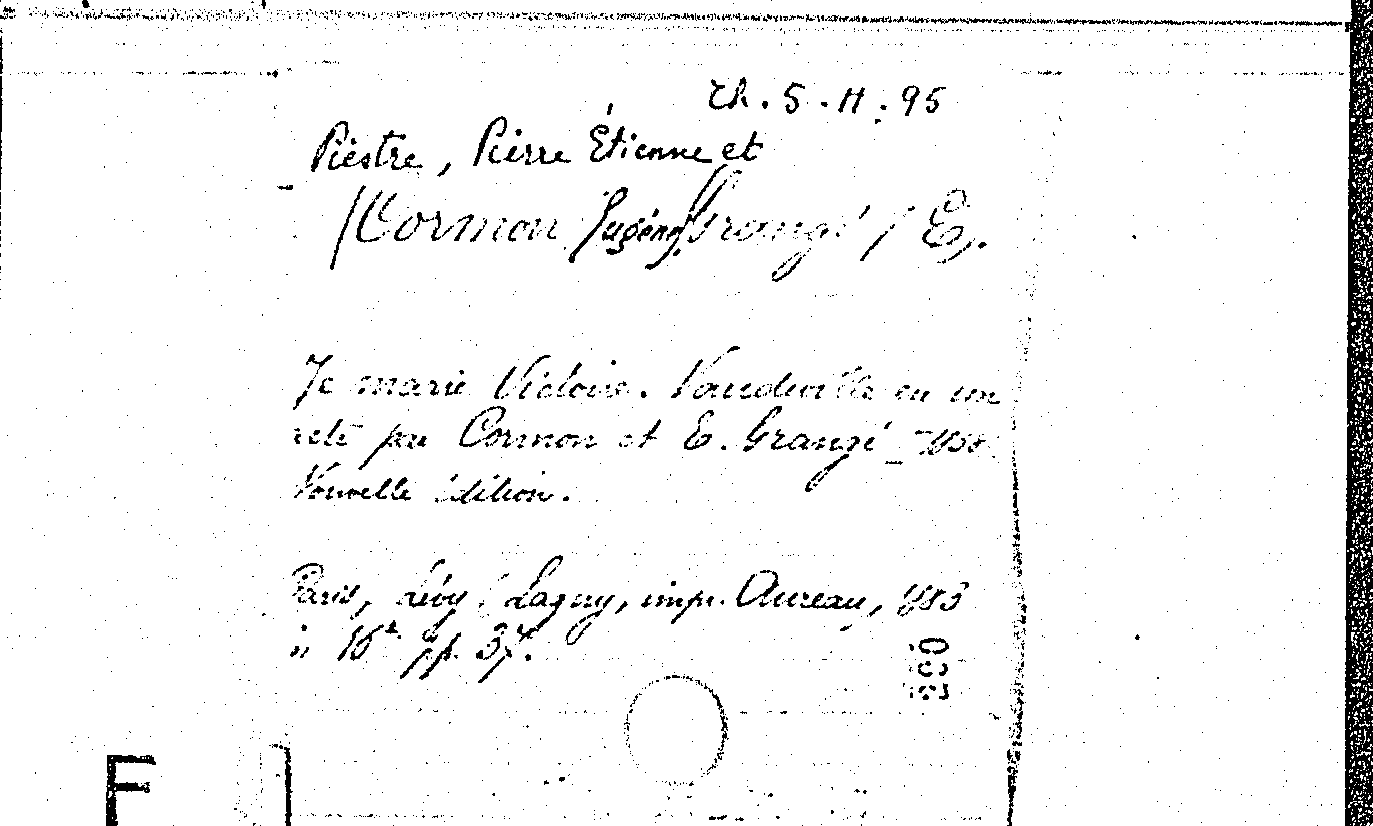 Th. 5.H.95
Piestre, Pierre Étienne et
/Cormon (Eugène) Grangé / E.
Je marie Victoire. Vaudeville en un
acte par Cormon et E. Grangé _
Nouvelle édition.
Paris, Lévy / Lagny, impr. Aureau, 1883
in 16° pp. 37.
F